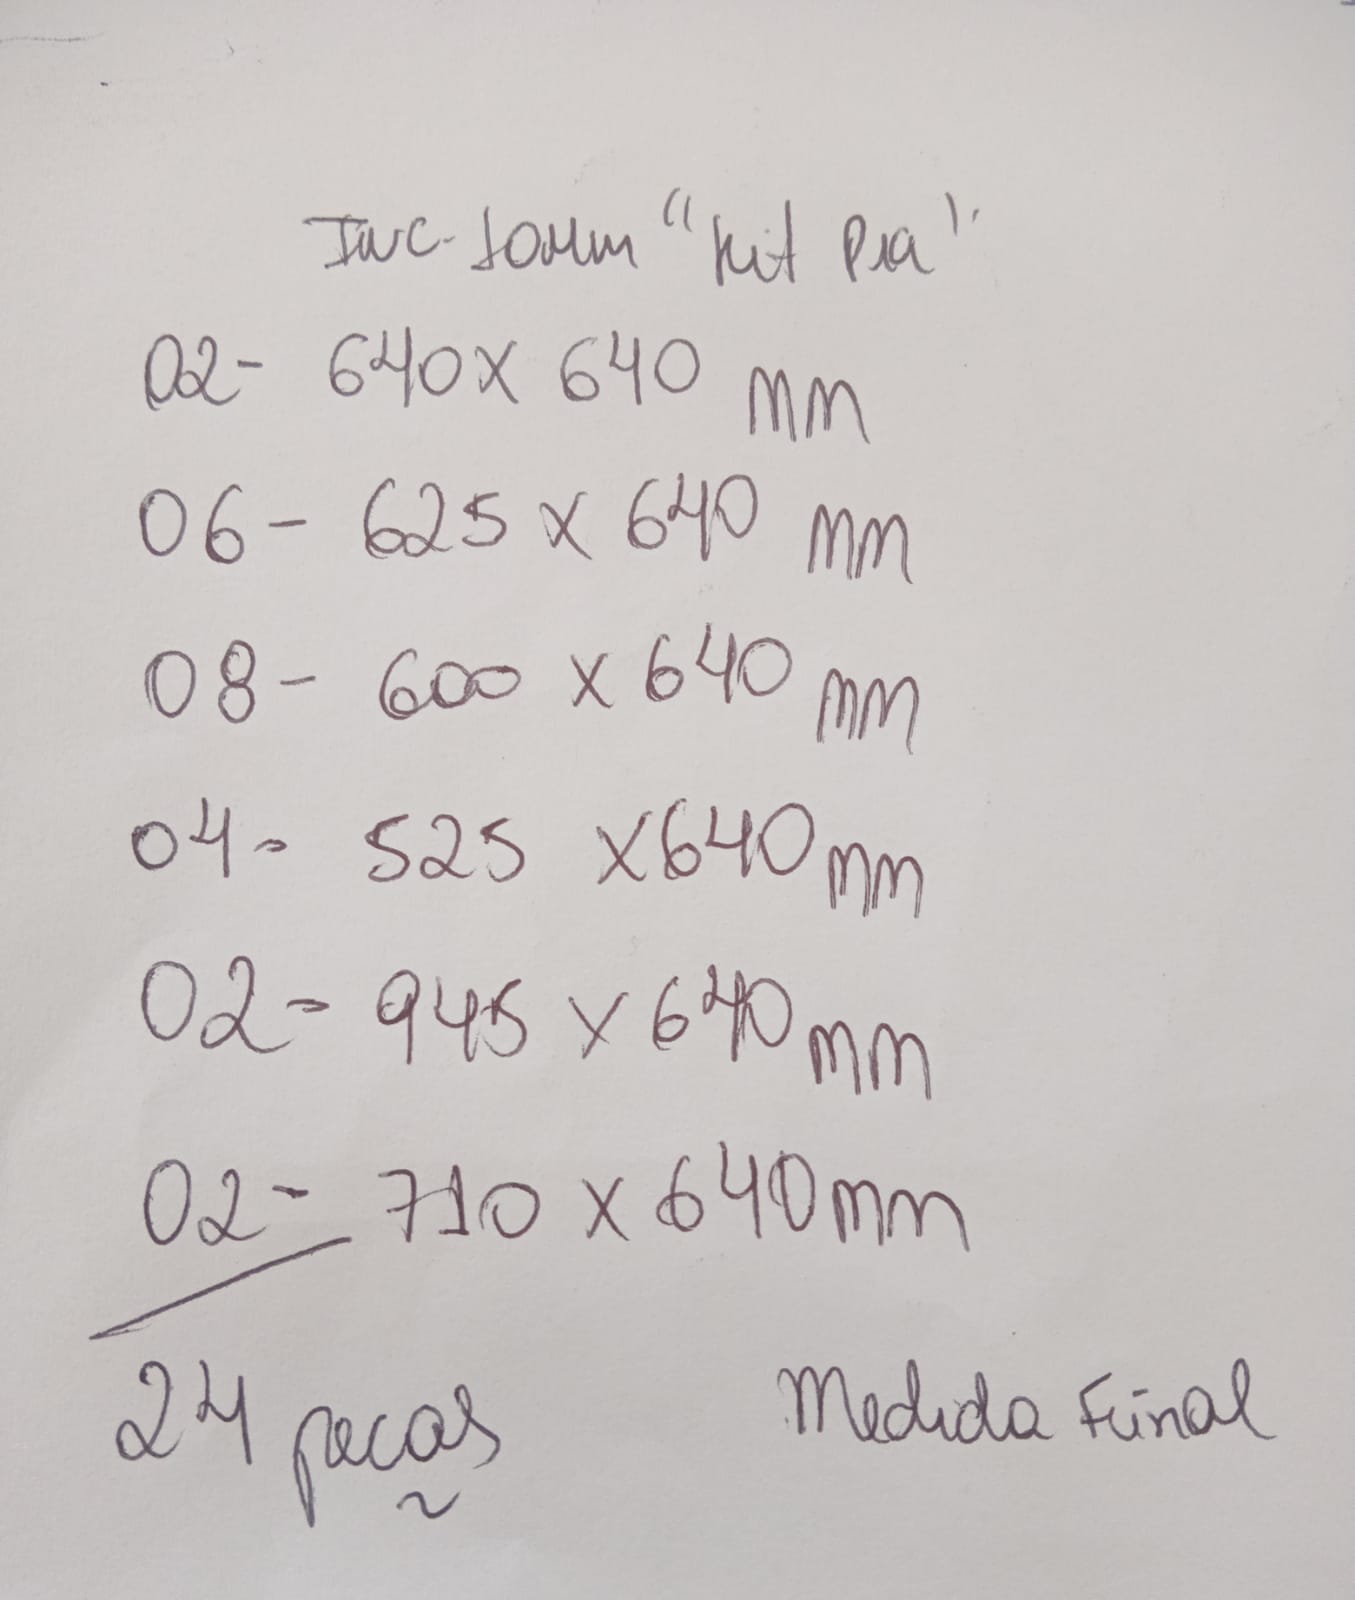 Inc-10mm "Kit Pia"
02- 640x 640 mm
06- 625 x 640 mm
08- 600 x 640 mm
04- 525 x640mm
02- 945 x 640mm
02- 710 x 640mm
24 peças
Medida Final